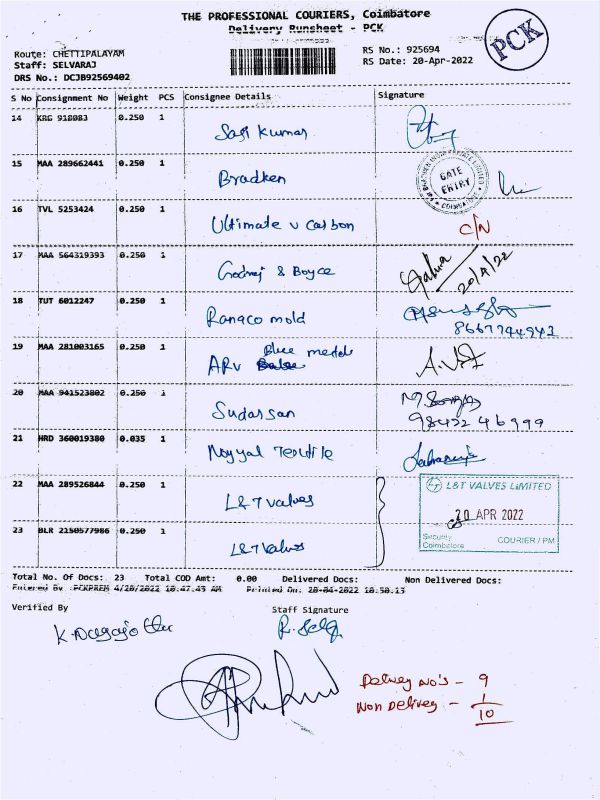 THE PROFESSIONAL COURIERS, Coimbatore
Delivery Runsheet - PCK
PCK
Route: CHETTIPALAYAM
Staff: SELVARAJ
DRS No.: DCJB92569402
RS No.: 925694
RS Date: 20-Apr-2022
S No Consignment No Weight PCS Consignee Details Signature
14 KRG 918083 0.250 1 Saji Kumar
15 MAA 289662441 0.250 1 Bradken
GATE ENTRY
16 TVL 5253424 0.250 1 Ultimate v carbon C/N
17 MAA 564319393 0.250 1 Godrej & Boyce 20/4/22
18 TUT 6012247 0.250 1 Ranaco mold
8667744941
19 MAA 281003165 0.250 1 ARV Blue A.V
20 MAA 941523802 0.250 1 Sudarsan
98422 46999
21 HRD 360019380 0.035 1 Noyyal Textile
22 MAA 289526844 0.250 1 L&T valves
23 BLR 2150577986 0.250 1 L&T valves
L&T VALVES LIMITED
20 APR 2022
Security
Coimbatore
COURIER / PM
Total No. Of Docs: 23 Total COD Amt: 0.00 Delivered Docs: Non Delivered Docs:
Entered By :PCKPREM 4/20/2022 10:47:45 AM Printed On: 20-04-2022 10:50:13
Verified By
Staff Signature
Delivey No's - 9
Non Delivey - 1
10